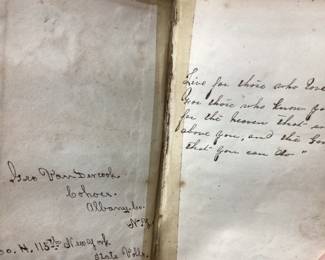 Geo. Van Dercook.
Cohoes.
Albany Co.
N.Y.
Co. H. 115th New York
State Vols.
Live for those who love
You those who know you
for the heaven that
above you, and the
that you can do"